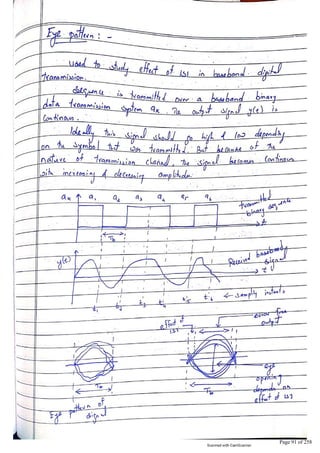 Eye pattern : -
used to study effect of ISI in baseband digital
transmission.
Sequence is transmitted over a baseband binary
data transmission system ak. The output signal y(t) is
continous.
Ideally this signal should go high & low depending
on the symbol that was transmitted. But because of the
nature of transmission channel, the signal becomes continous
with increasing & decreasing amplitudes.
transmitted
binary sequence
t
Tb
y(t)
Received baseband
signal
t
← sampling instants
effect of
ISI
error free
output
eye
opening
depends on
effect of ISI
Tb
Tb
Eye pattern of
signal
Scanned with CamScanner
Page 91 of 258